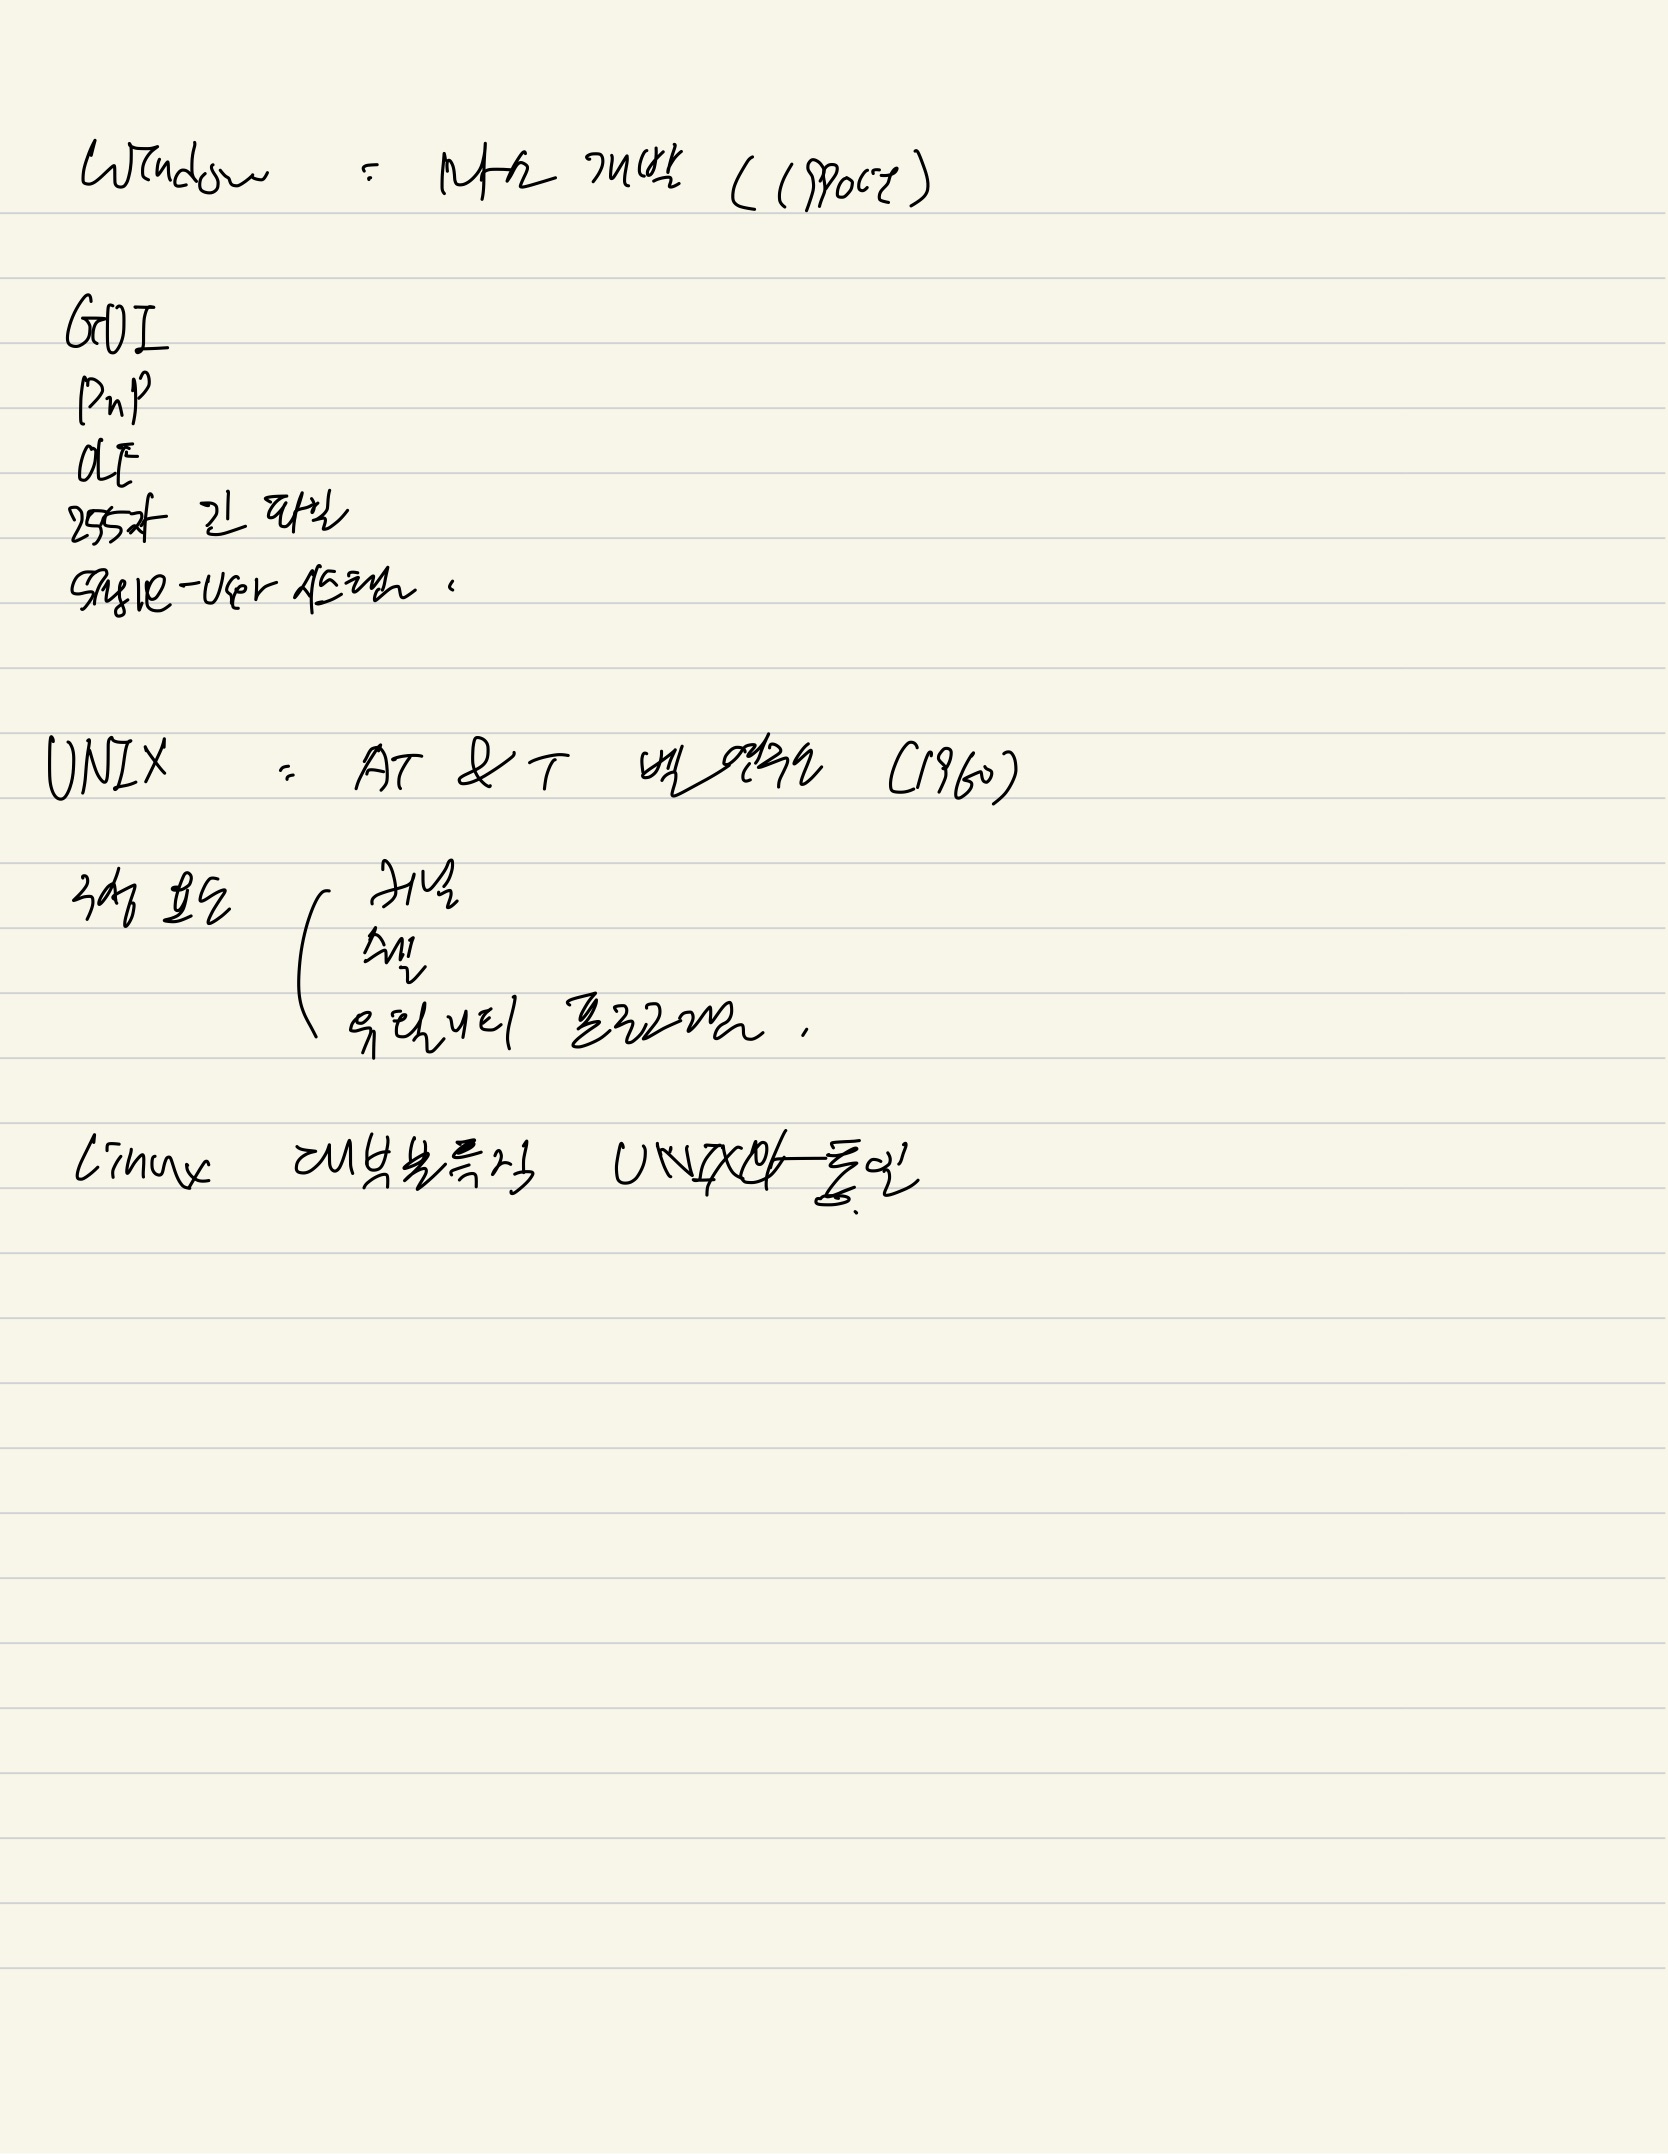 Window : 마소 개발 (1990년)
GUI
PnP
OLE
255자 긴 파일
Single-User 시스템.
UNIX : AT & T 벨 연구소 (1960)
구성 요소
커널
쉘
유틸니티 프로그램.
Linux 대부분특징 UNIX와 동일.